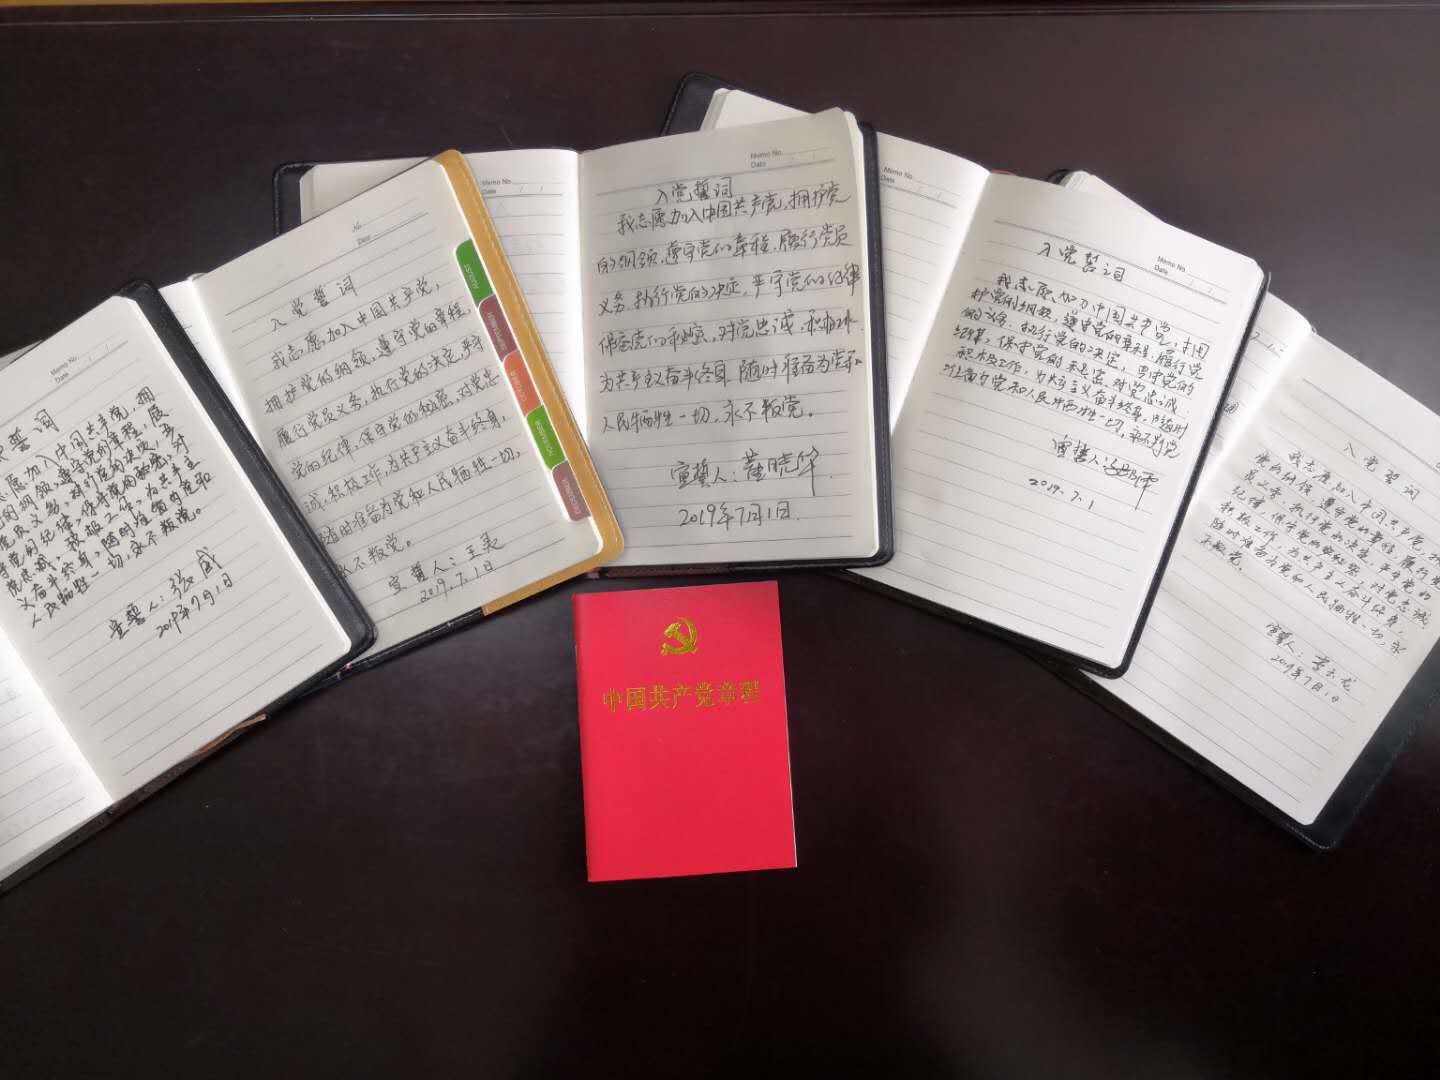 Memo No.
Date
誓词
愿加入中国共产党，拥
的纲领，遵守党的章程，履
党员义务，执行党的决定，严
守党的纪律，保守党的秘密，对
党忠诚，积极工作，为共产主
义奋斗终身，随时准备为党和
人民牺牲一切，永不叛党。
宣誓人：张威
2019年7月1日
No
Date
入党誓词
我志愿加入中国共产党，
拥护党的纲领，遵守党的章程，
履行党员义务，执行党的决定，严守
党的纪律，保守党的秘密，对党忠
诚，积极工作，为共产主义奋斗终身，
随时准备为党和人民牺牲一切，
永不叛党。
宣誓人：王
2019.7.1日
AUGUST
SEPTEMBER
OCTOBER
NOVEMBER
DECEMBER
Memo No.
Date
Memo No.
Date
入党誓词
我志愿加入中国共产党，拥护党
的纲领，遵守党的章程，履行党员
义务，执行党的决定，严守党的纪律
保守党的秘密，对党忠诚，积极工作，
为共产主义奋斗终身，随时准备为党和
人民牺牲一切，永不叛党。
宣誓人：晓华
2019年7月1日.
Memo No.
Date
Memo No.
Date
入党誓词
我志愿加入中国共产党，拥
护党的纲领，遵守党的章程，履行党
的义务，执行党的决定，严守党的
纪律，保守党的秘密，对党忠诚，
积极工作，为共产主义奋斗终身，随时
准备为党和人民牺牲一切，永不叛党
宣誓人：
2019.7.1
入党誓词
我志愿加入中国共产党，拥
党的纲领，遵守党的章程，履行党
员义务，执行党的决定，严守党的
纪律，保守党的秘密，对党忠诚，
积极工作，为共产主义奋斗终身，
随时准备为党和人民牺牲一切，永
不叛党。
宣誓人：李云龙
2019年7月1日
中国共产党章程